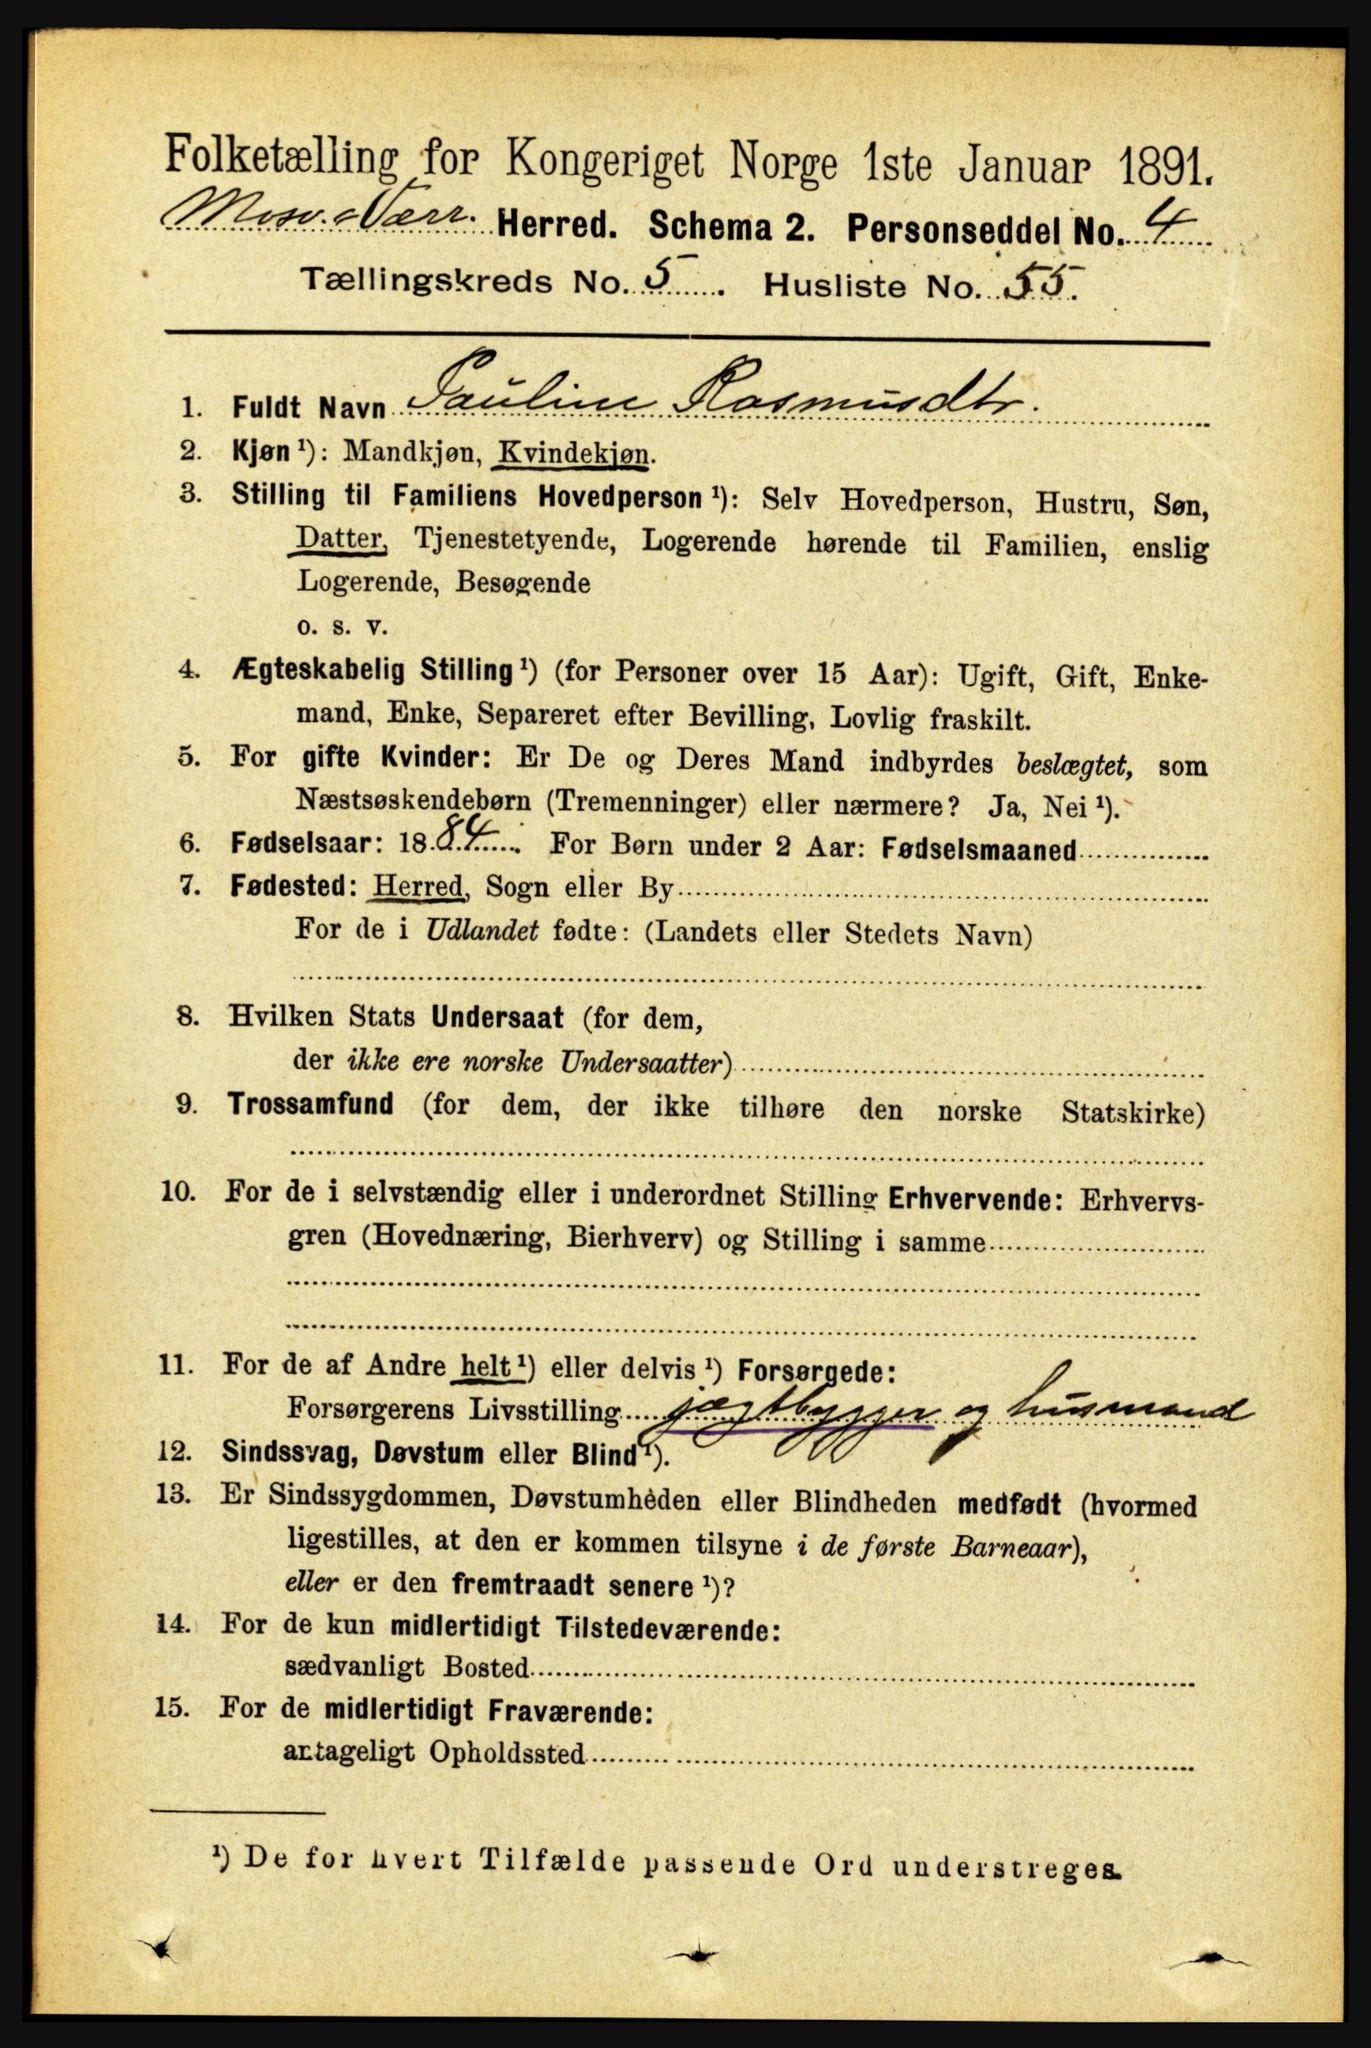 Folketælling for Kongeriget Norge 1ste Januar 1891.
Mosv. & Værr. Herred. Schema 2. Personseddel No. 4
Tællingskreds No. 5. Husliste No. 55.
1. Fuldt Navn Pauline Rasmusdtr.
2. Kjøn ¹): Mandkjøn, Kvindekjøn.
3. Stilling til Familiens Hovedperson ¹): Selv Hovedperson, Hustru, Søn,
Datter, Tjenestetyende, Logerende hørende til Familien, enslig
Logerende, Besøgende
o. s. v.
4. Ægteskabelig Stilling ¹) (for Personer over 15 Aar): Ugift, Gift, Enke-
mand, Enke, Separeret efter Bevilling, Lovlig fraskilt.
5. For gifte Kvinder: Er De og Deres Mand indbyrdes beslægtet, som
Næstsøskendebørn (Tremenninger) eller nærmere? Ja, Nei ¹).
6. Fødselsaar: 1884. For Børn under 2 Aar: Fødselsmaaned
7. Fødested: Herred, Sogn eller By
For de i Udlandet fødte: (Landets eller Stedets Navn)
8. Hvilken Stats Undersaat (for dem,
der ikke ere norske Undersaatter)
9. Trossamfund (for dem, der ikke tilhøre den norske Statskirke)
10. For de i selvstændig eller i underordnet Stilling Erhvervende: Erhvervs-
gren (Hovednæring, Bierhverv) og Stilling i samme
11. For de af Andre helt ¹) eller delvis ¹) Forsørgede:
Forsørgerens Livsstilling jægtbygger og husmand
12. Sindssvag, Døvstum eller Blind ¹).
13. Er Sindssygdommen, Døvstumheden eller Blindheden medfødt (hvormed
ligestilles, at den er kommen tilsyne i de første Barneaar),
eller er den fremtraadt senere ¹)?
14. For de kun midlertidigt Tilstedeværende:
sædvanligt Bosted
15. For de midlertidigt Fraværende:
antageligt Opholdssted
¹) De for hvert Tilfælde passende Ord understreges.